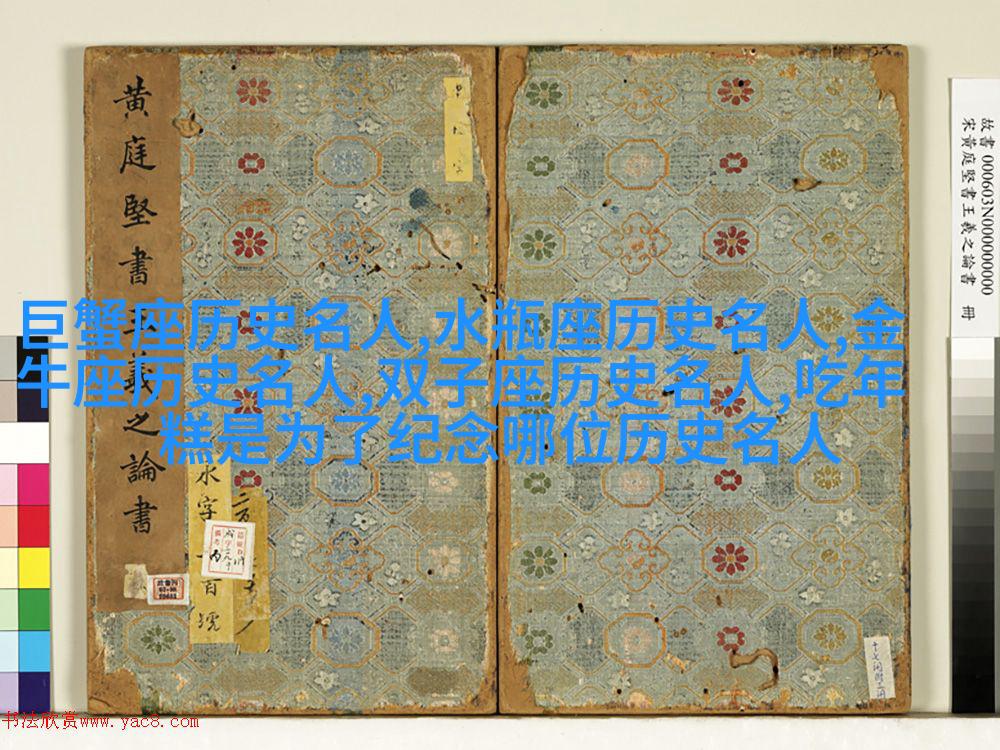 黄庭堅書王羲之論書
故書 000603N000000000
宋黄庭堅書王羲之論書 冊
巨蟹座历史名人,水瓶座历史名人,金
牛座历史名人,双子座历史名人,吃年
糕是为了纪念哪位历史名人
书法欣赏www.yac8.com